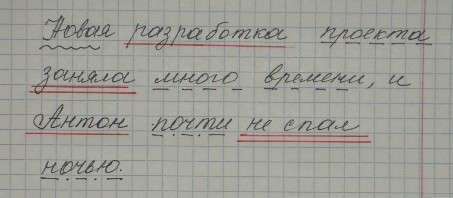 Новая разработка проекта
заняла много времени, и
Антон почти не спал
ночью.